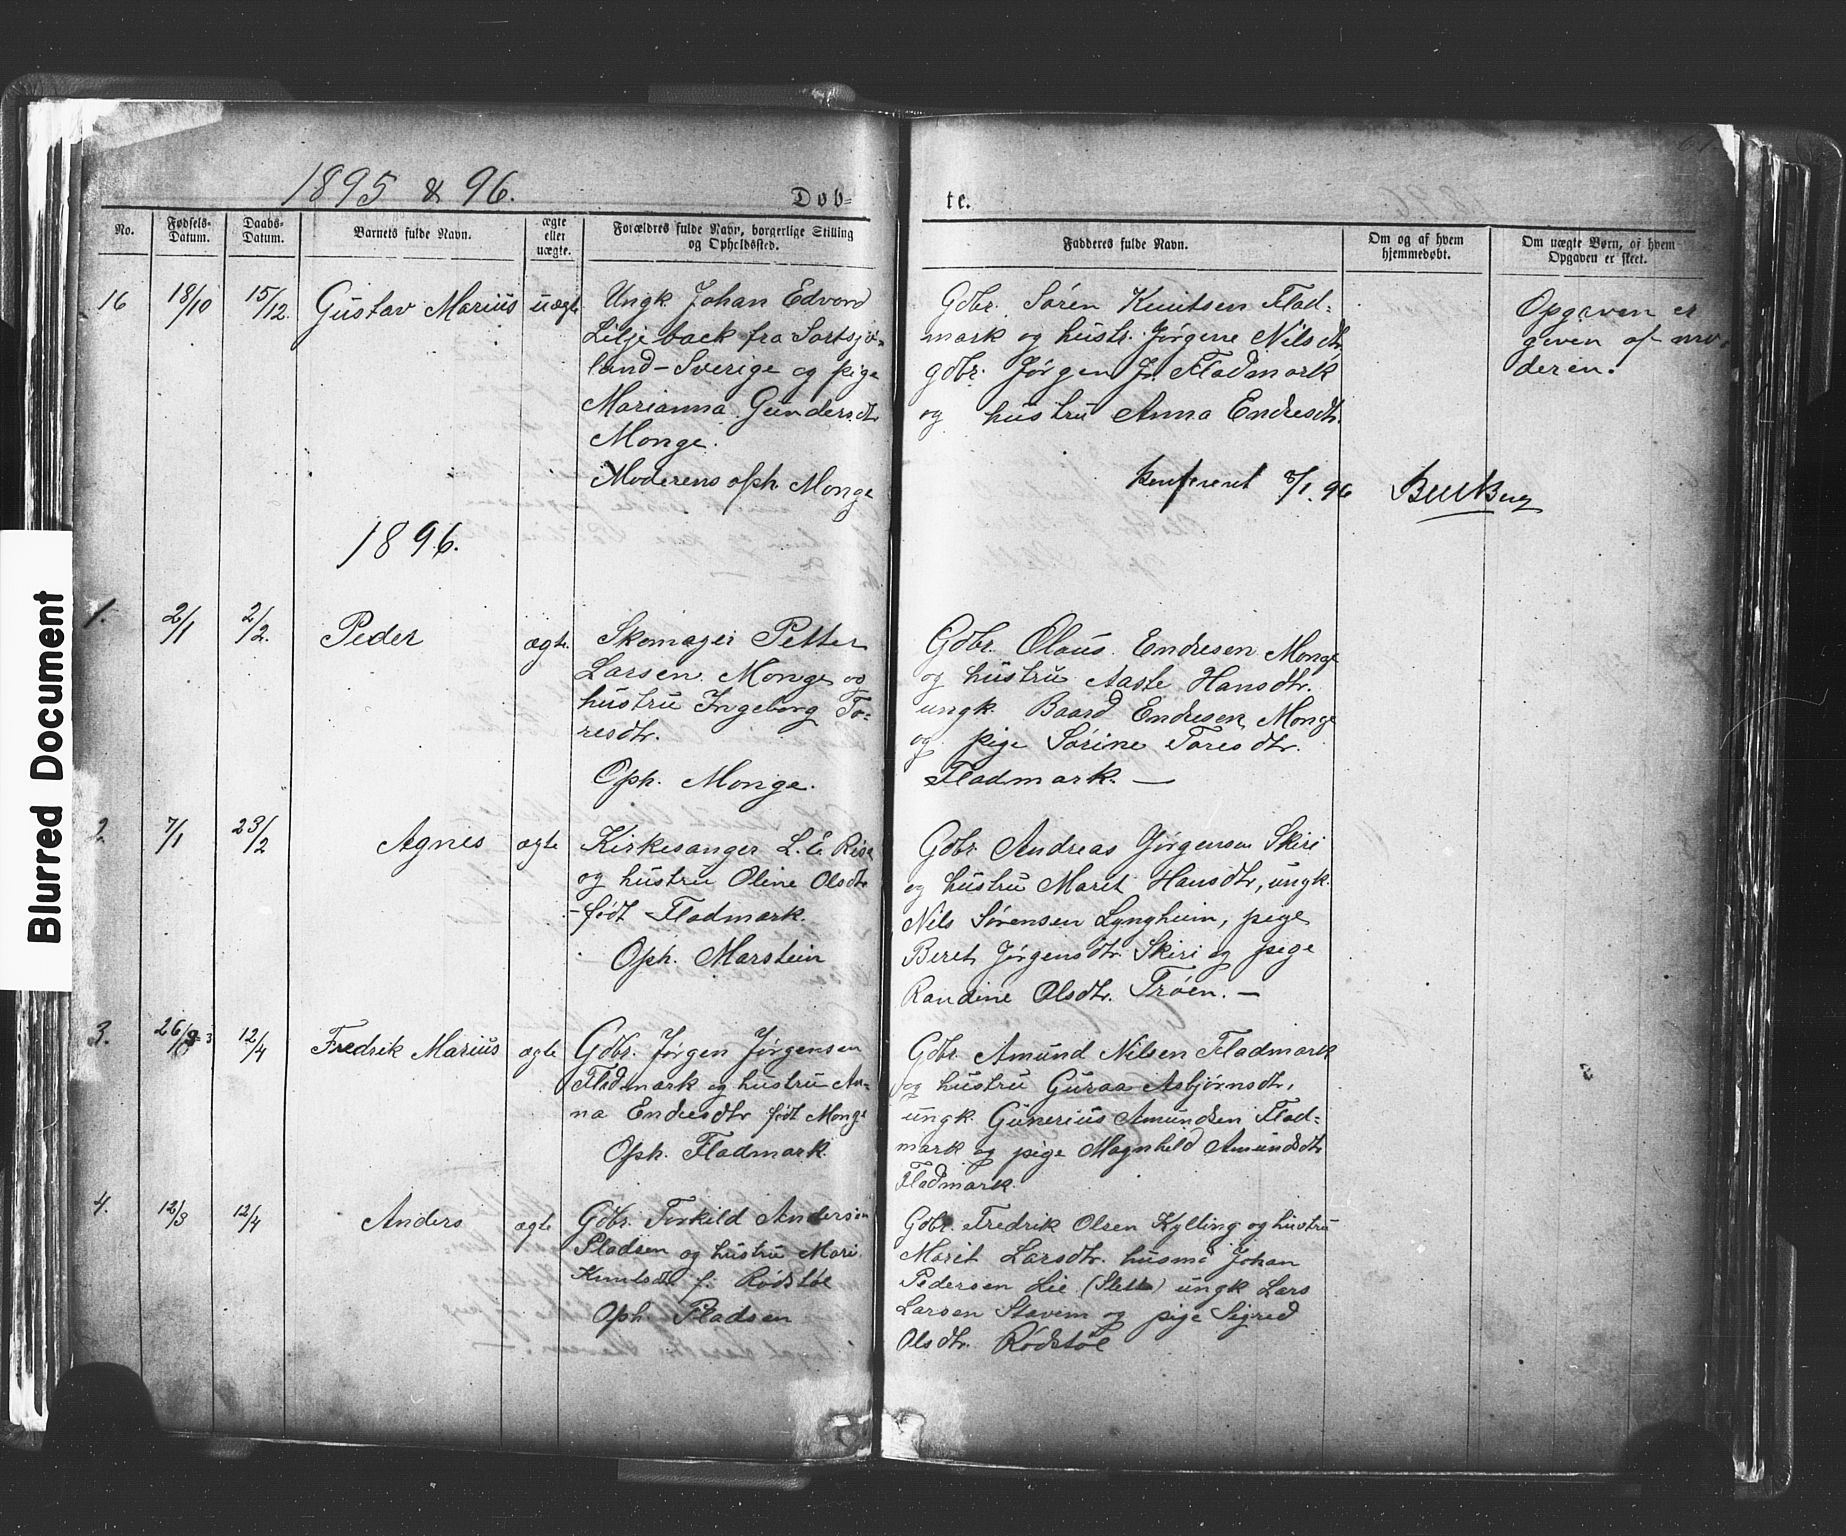 Blurred Document
1895 & 96.
Døb=
te.
No.
Fødsels-
Datum.
Daabs-
Datum.
Barnets fulde Navn.
ægte
eller
uægte.
Forældres fulde Navn, borgerlige Stilling
og Opholdssted.
Fadderes fulde Navn.
Om og af hvem
hjemmedøbt.
Om uægte Børn, af hvem
Opgaven er skeet.
16
18/10
15/12.
Gustav Marius
uægte
Ungk Johan Edvard
Liljeback fra
land - Sverige og pige
Marianna Gundersdtr
Monge.
Moderens oph. Monge
Gdbr. Søren Knutsen Flad=
mark og hustr. Jørgine Nilsdtr
gdbr. Jørgen Jr. Fladmark
og hustru Anna Endresdtr.
Opgaven er
given af mo=
deren.
Konfereret 8/1.96
1896.
1.
2/1
2/2.
Peder
ægte.
Skomager Petter
Larsen Monge og
hustru Ingeborg To=
resdtr.
Oph. Monge.
Gdbr. Olaus Endresen Monge
og hustru Aaste Hansdtr.
ungk. Baard Endresen Monge
og pige Sørine Toresdtr.
Fladmark. —
2.
7/1
23/2
Agnes
ægte
Kirkesanger L. E. Rise
og hustru Oline Olsdtr
- født Fladmark.
Oph. Marstein
Gdbr Andreas Jørgensen Skiri
og hustru Marit Hansdtr, ungk.
Nils Sørensen Lyngheim, pige
Beret Jørgensdtr Skiri og pige
Randine Olsdtr. Trøen. —
3.
26/3
12/4
Fredrik Marius
ægte
Gdbr. Jørgen Jørgensen
Fladmark og hustru An=
na Endresdtr født Monge
Oph. Fladmark.
Gdbr Amund Nilsen Fladmark
og hustru Guraa Asbjørnsdtr,
ungk. Gunerius Amundsen Flad=
mark og pige Magnhild Amundsdtr
Fladmark.
4.
12/3
12/4
Anders
ægte
Gdbr. Torkild Andersen
Pladsen og hustru Mari
Knutsdtr f. Rødstøl
Oph. Pladsen
Gdbr. Fredrik Olsen Kylling og hustru
Marit Larsdtr. husmd Johan
Pedersen Lie (Slette) ungk Lars
Larsen Stavem og pige Sigred
Olsdtr. Rødstøl